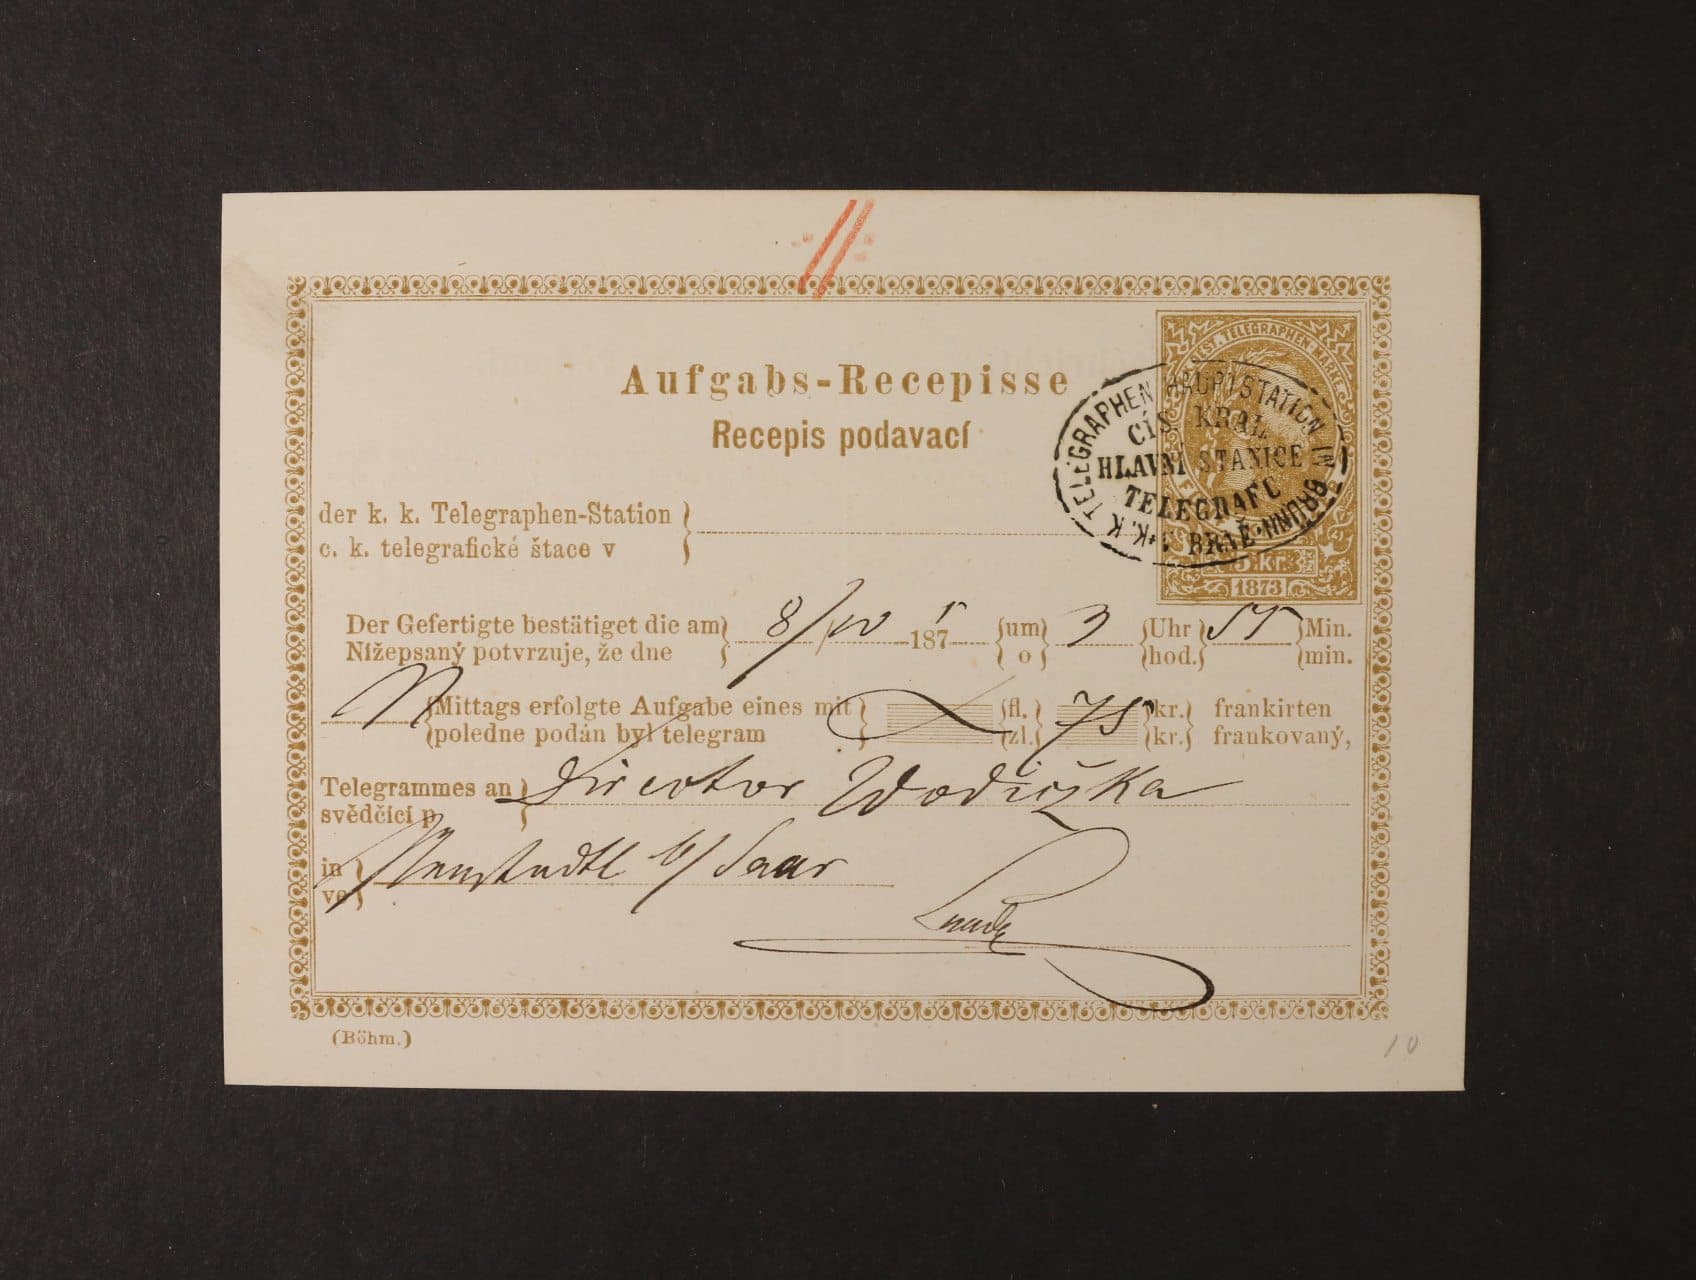 ST. TELEGRAPHEN MARKE
K.K. TELEGRAPHEN HAUPTSTATION IN BRÜNN
CÍS. KRÁL.
HLAVNÍ STANICE
TELEGRAFU
V BRNĚ
5 kr.
1873
Aufgabs-Recepisse
Recepis podavací
der k. k. Telegraphen-Station
c. k. telegrafické štace v
Der Gefertigte bestätiget die am 8/10 1875 um 3 Uhr 55 Min.
Nížepsaný potvrzuje, že dne o hod. min.
N Mittags erfolgte Aufgabe eines mit fl. 75 kr. frankirten
poledne podán byl telegram zl. kr. frankovaný,
Telegrammes an Director Wodiczka
svědčící p.
in Neustadtl b/ Saar
ve
(Böhm.)
10